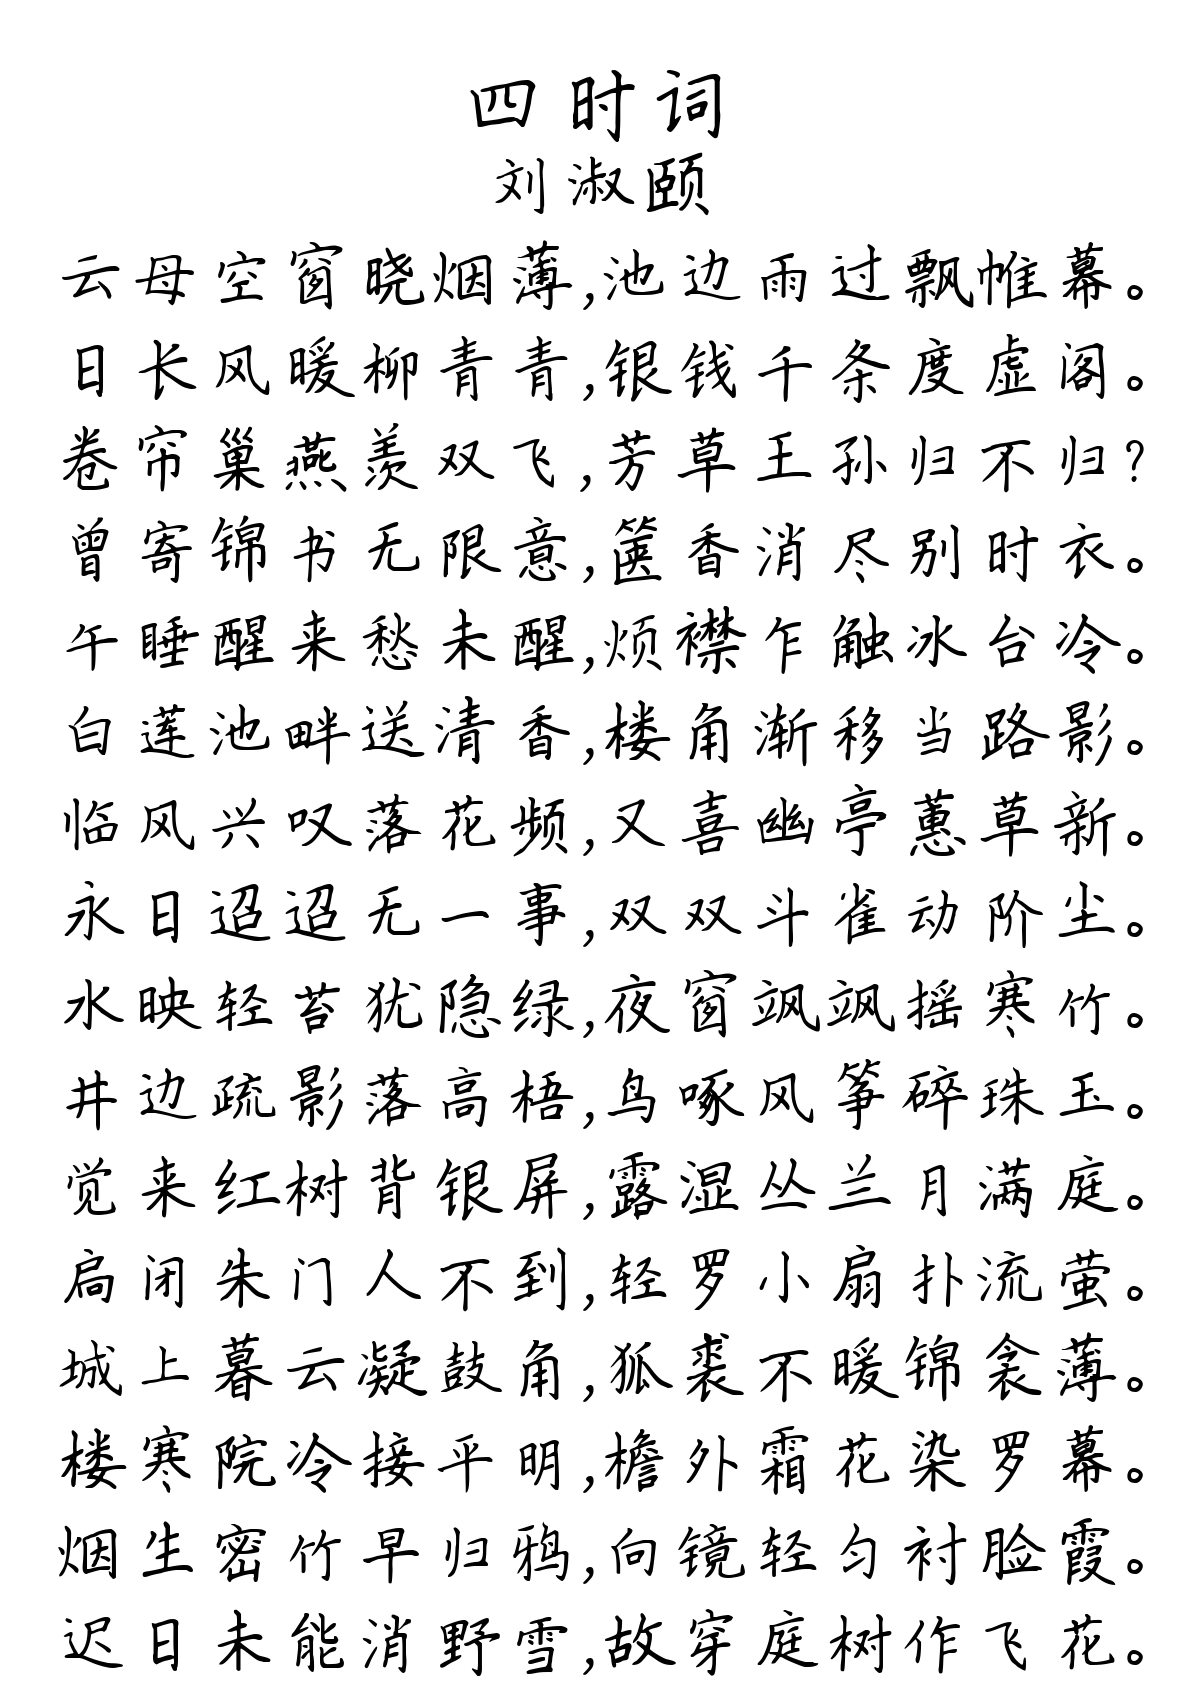 四时词
刘淑颐
云母空窗晓烟薄,池边雨过飘帷幕。
日长风暖柳青青,银钱千条度虚阁。
卷帘巢燕羡双飞,芳草王孙归不归?
曾寄锦书无限意,箧香消尽别时衣。
午睡醒来愁未醒,烦襟乍触冰台冷。
白莲池畔送清香,楼角渐移当路影。
临风兴叹落花频,又喜幽亭蕙草新。
永日迢迢无一事,双双斗雀动阶尘。
水映轻苔犹隐绿,夜窗飒飒摇寒竹。
井边疏影落高梧,鸟啄风筝碎珠玉。
觉来红树背银屏,露湿丛兰月满庭。
扃闭朱门人不到,轻罗小扇扑流萤。
城上暮云凝鼓角,狐裘不暖锦衾薄。
楼寒院冷接平明,檐外霜花染罗幕。
烟生密竹早归鸦,向镜轻匀衬脸霞。
迟日未能消野雪,故穿庭树作飞花。